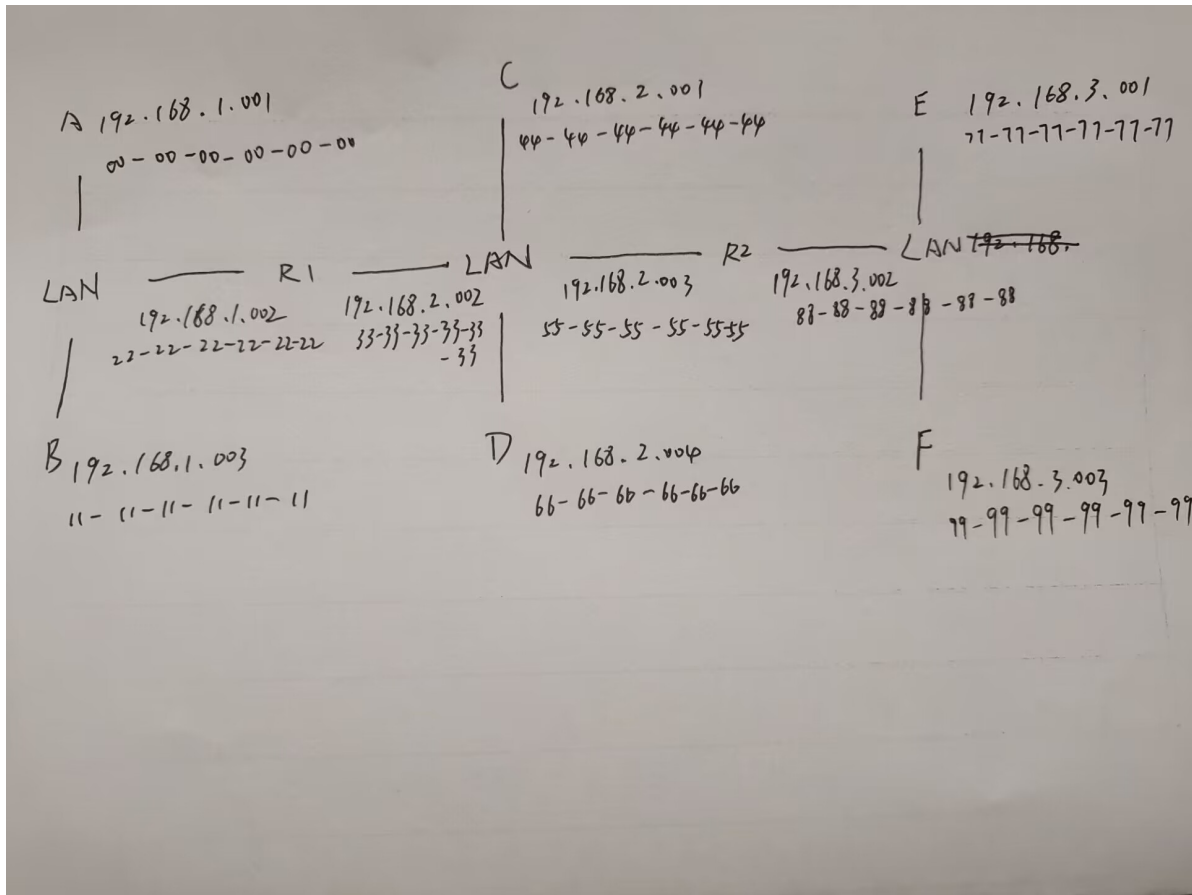 C
A 192.168.1.001
192.168.2.001
E 192.168.3.001
00-00-00-00-00-00
44-44-44-44-44-44
77-77-77-77-77-77
LAN
R1
LAN
R2
LAN 192.168.
192.168.1.002
22-22-22-22-22-22
192.168.2.002
33-33-33-33-33
-33
192.168.2.003
55-55-55-55-5555
192.168.3.002
88-88-88-88-88-88
B 192.168.1.003
11-11-11-11-11-11
D 192.168.2.004
66-66-66-66-66-66
F
192.168.3.003
99-99-99-99-99-99